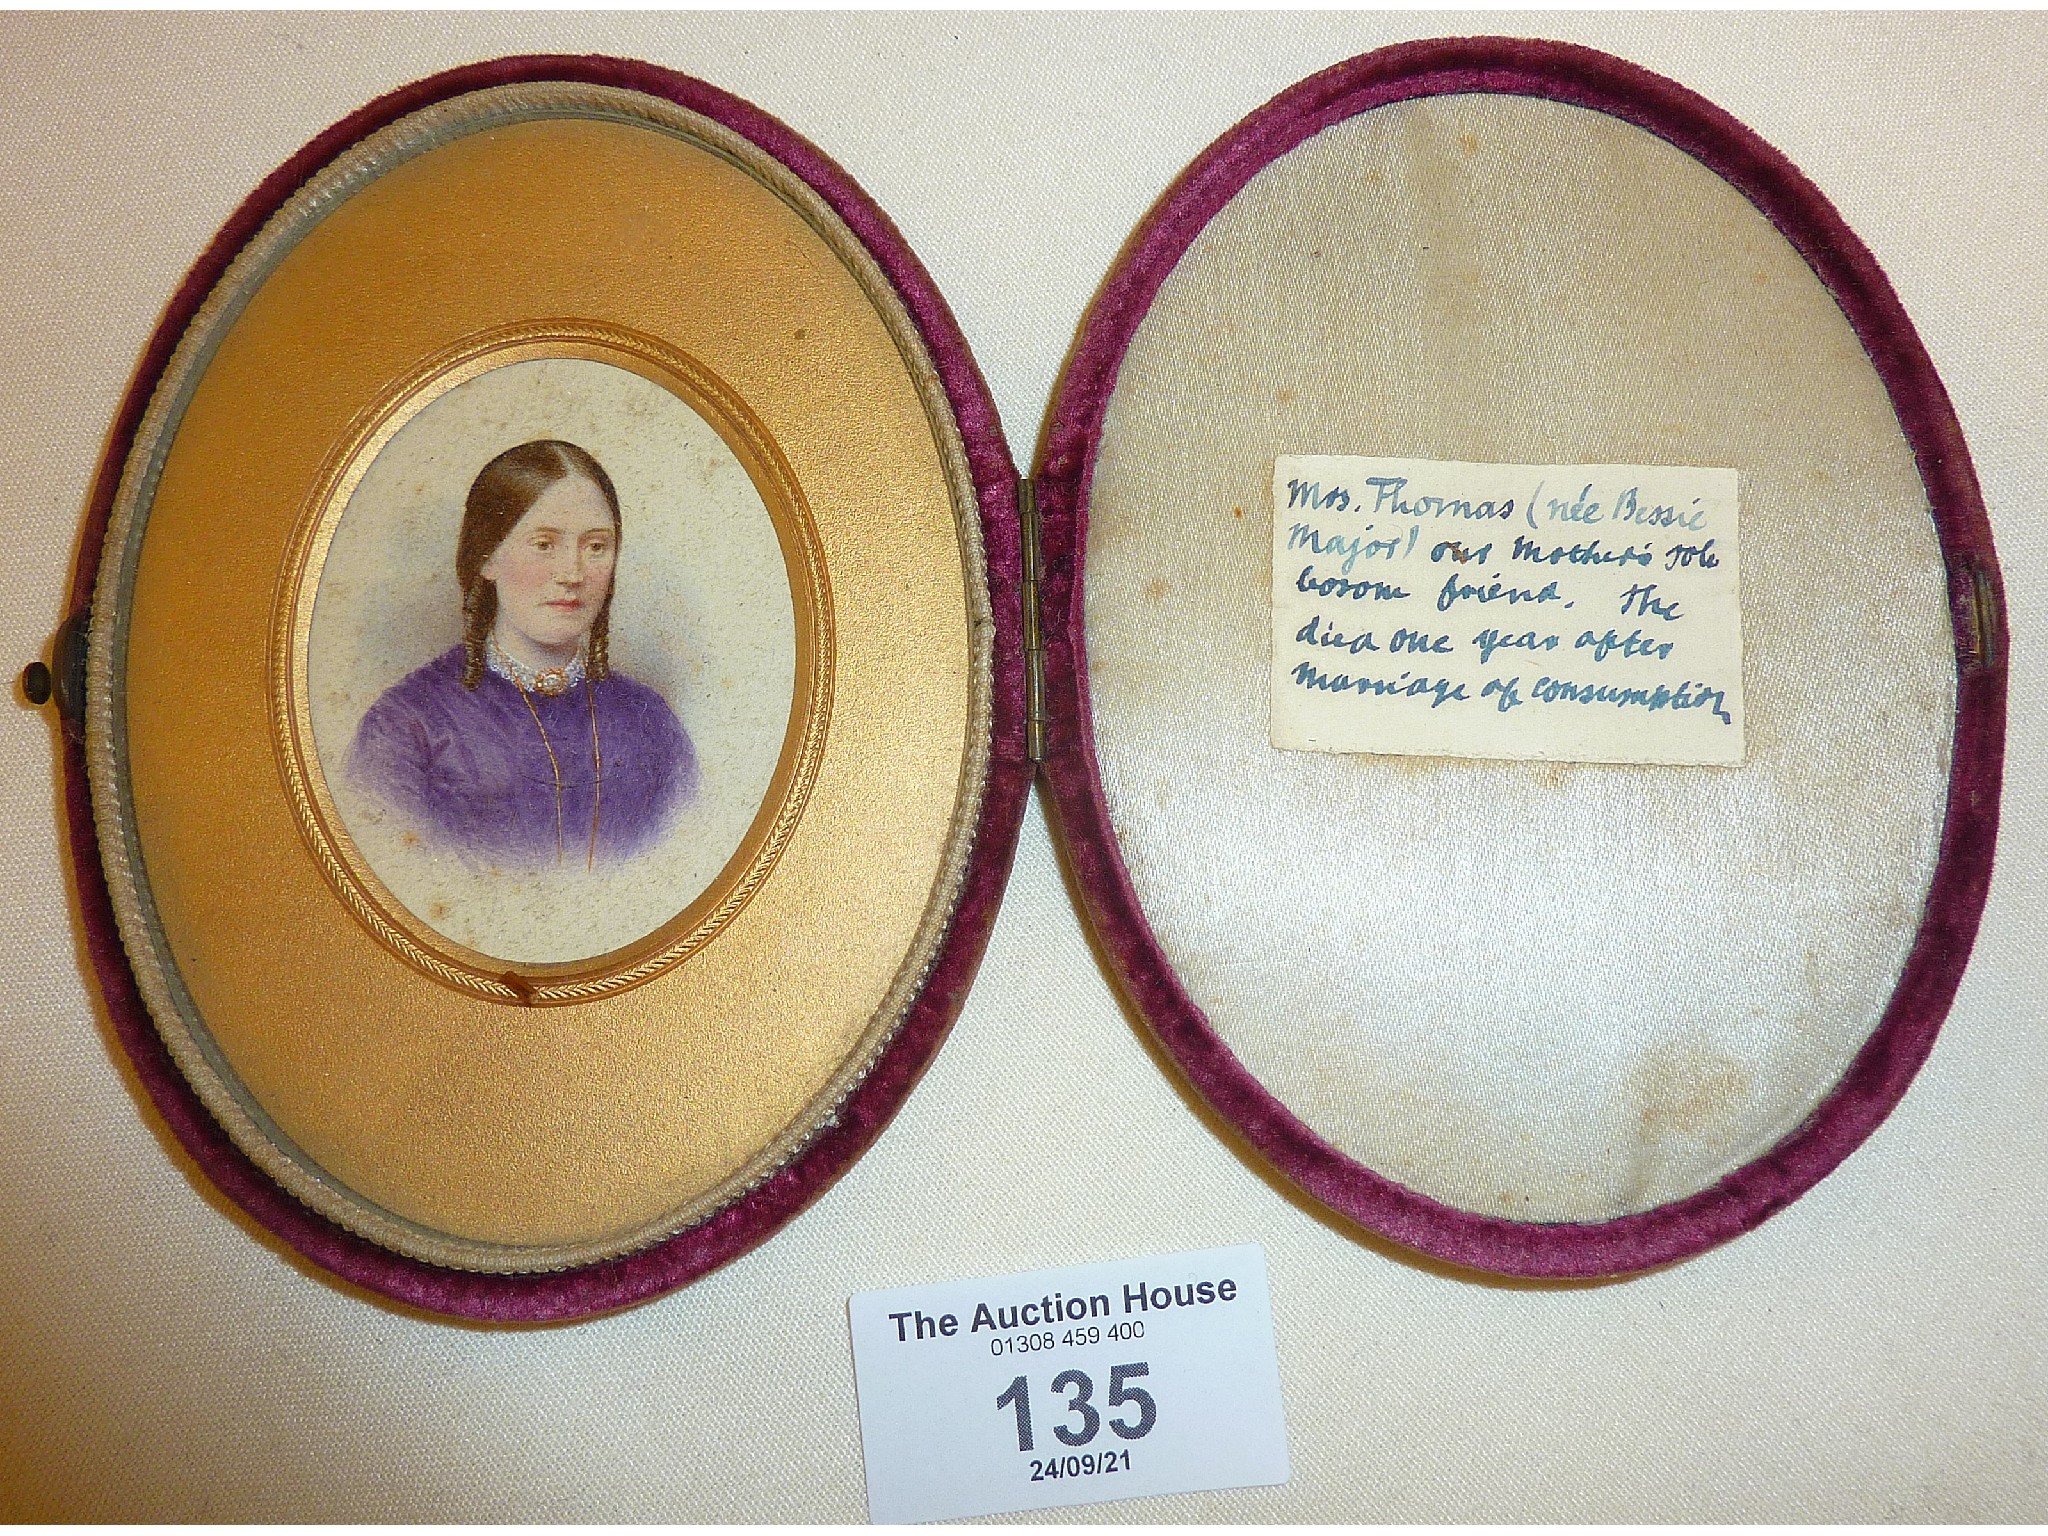 Mrs. Thomas (née Bessie
Major) our Mother's sole
bosom friend. She
died one year after
marriage of consumption
The Auction House
01308 459 400
135
24/09/21